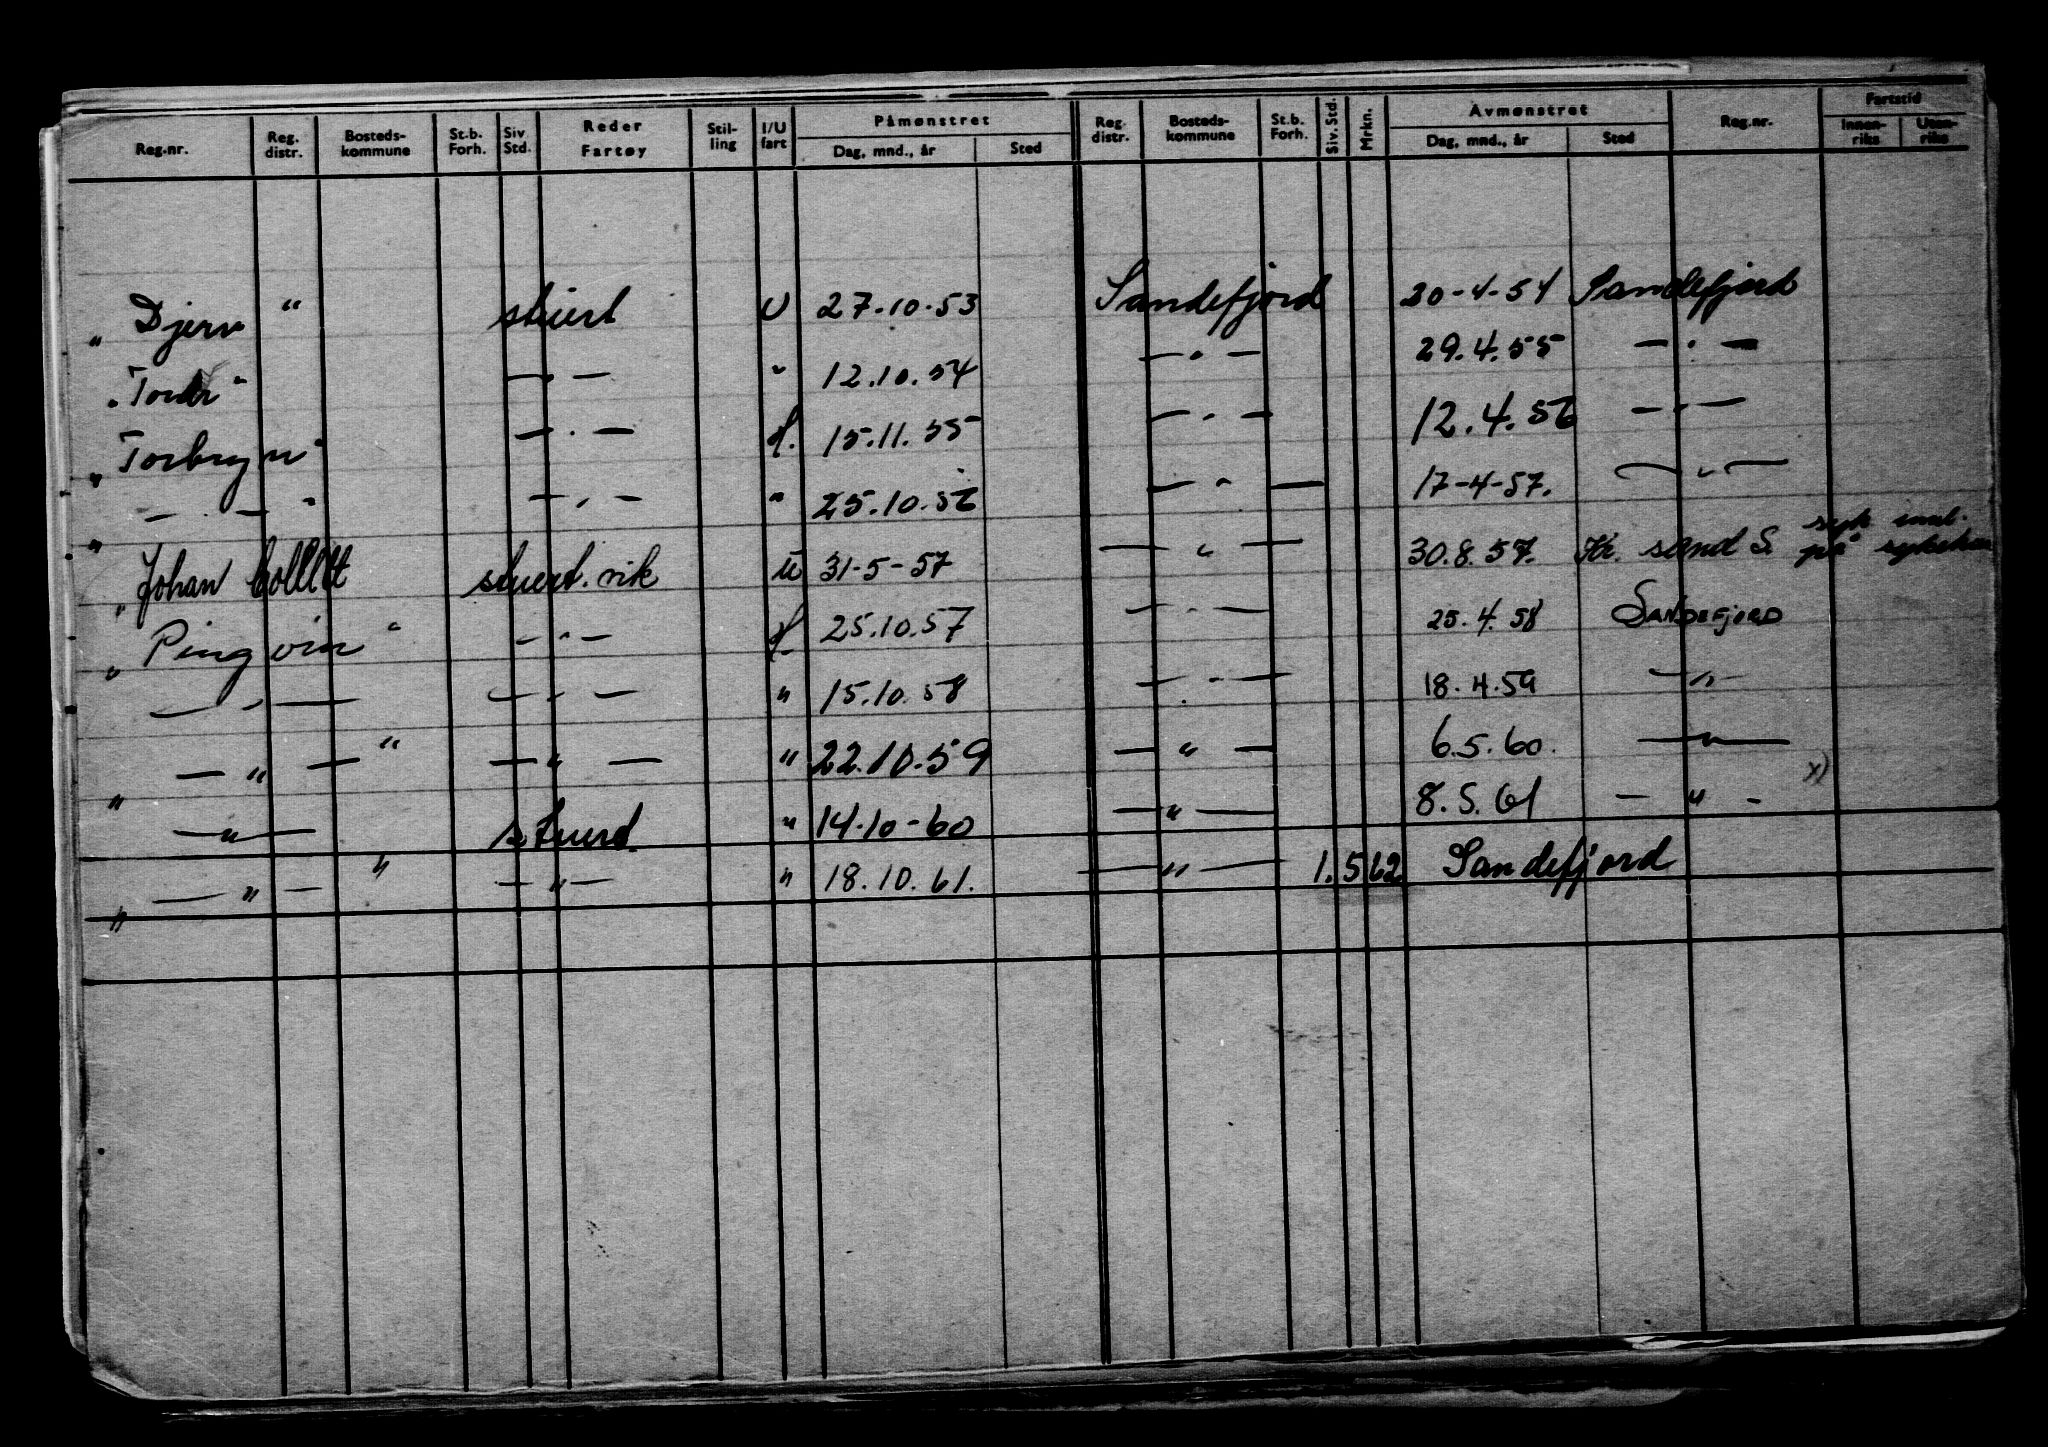 Reg.nr. Reg. distr. Bosteds- kommune St.b. Forh. Siv Std. Reder Fartøy Stil- ling I/U fart Påmønstret Dag, mnd., år Sted Reg. distr. Bosteds- kommune St.b. Forh. Siv. Std. Mrkn. Avmønstret Dag, mnd., år Sted Reg.nr. Fartstid Innen- riks Uten- riks
" Djerv " stuert U 27.10.53 Sandefjord 20-4-54 Sandefjord
" " — " — " 12.10.54 — " — 29.4.55 — " —
" Torbryn " — " — f. 15.11.55 — " — 12.4.56 — " —
" — " — " — " — " 25.10.56 — " — 17-4-57. — " —
" Johan Collett stuert. vik U 31-5-57 — " — 30.8.57. Kr. sand S. syk innl. på sykehus
" Pingvin " — " — f 25.10.57 — " — 25.4.58 Sandefjord
— " — — " — " 15.10.58 — " — 18.4.59 — " —
" — " — " — " — " 22.10.59 — " — 6.5.60. — " —
— " — stuerd " 14.10-60 — " — 8.5.61 — " — x)
" — " — " — " — " 18.10.61. — " — 1.5.62 Sandefjord